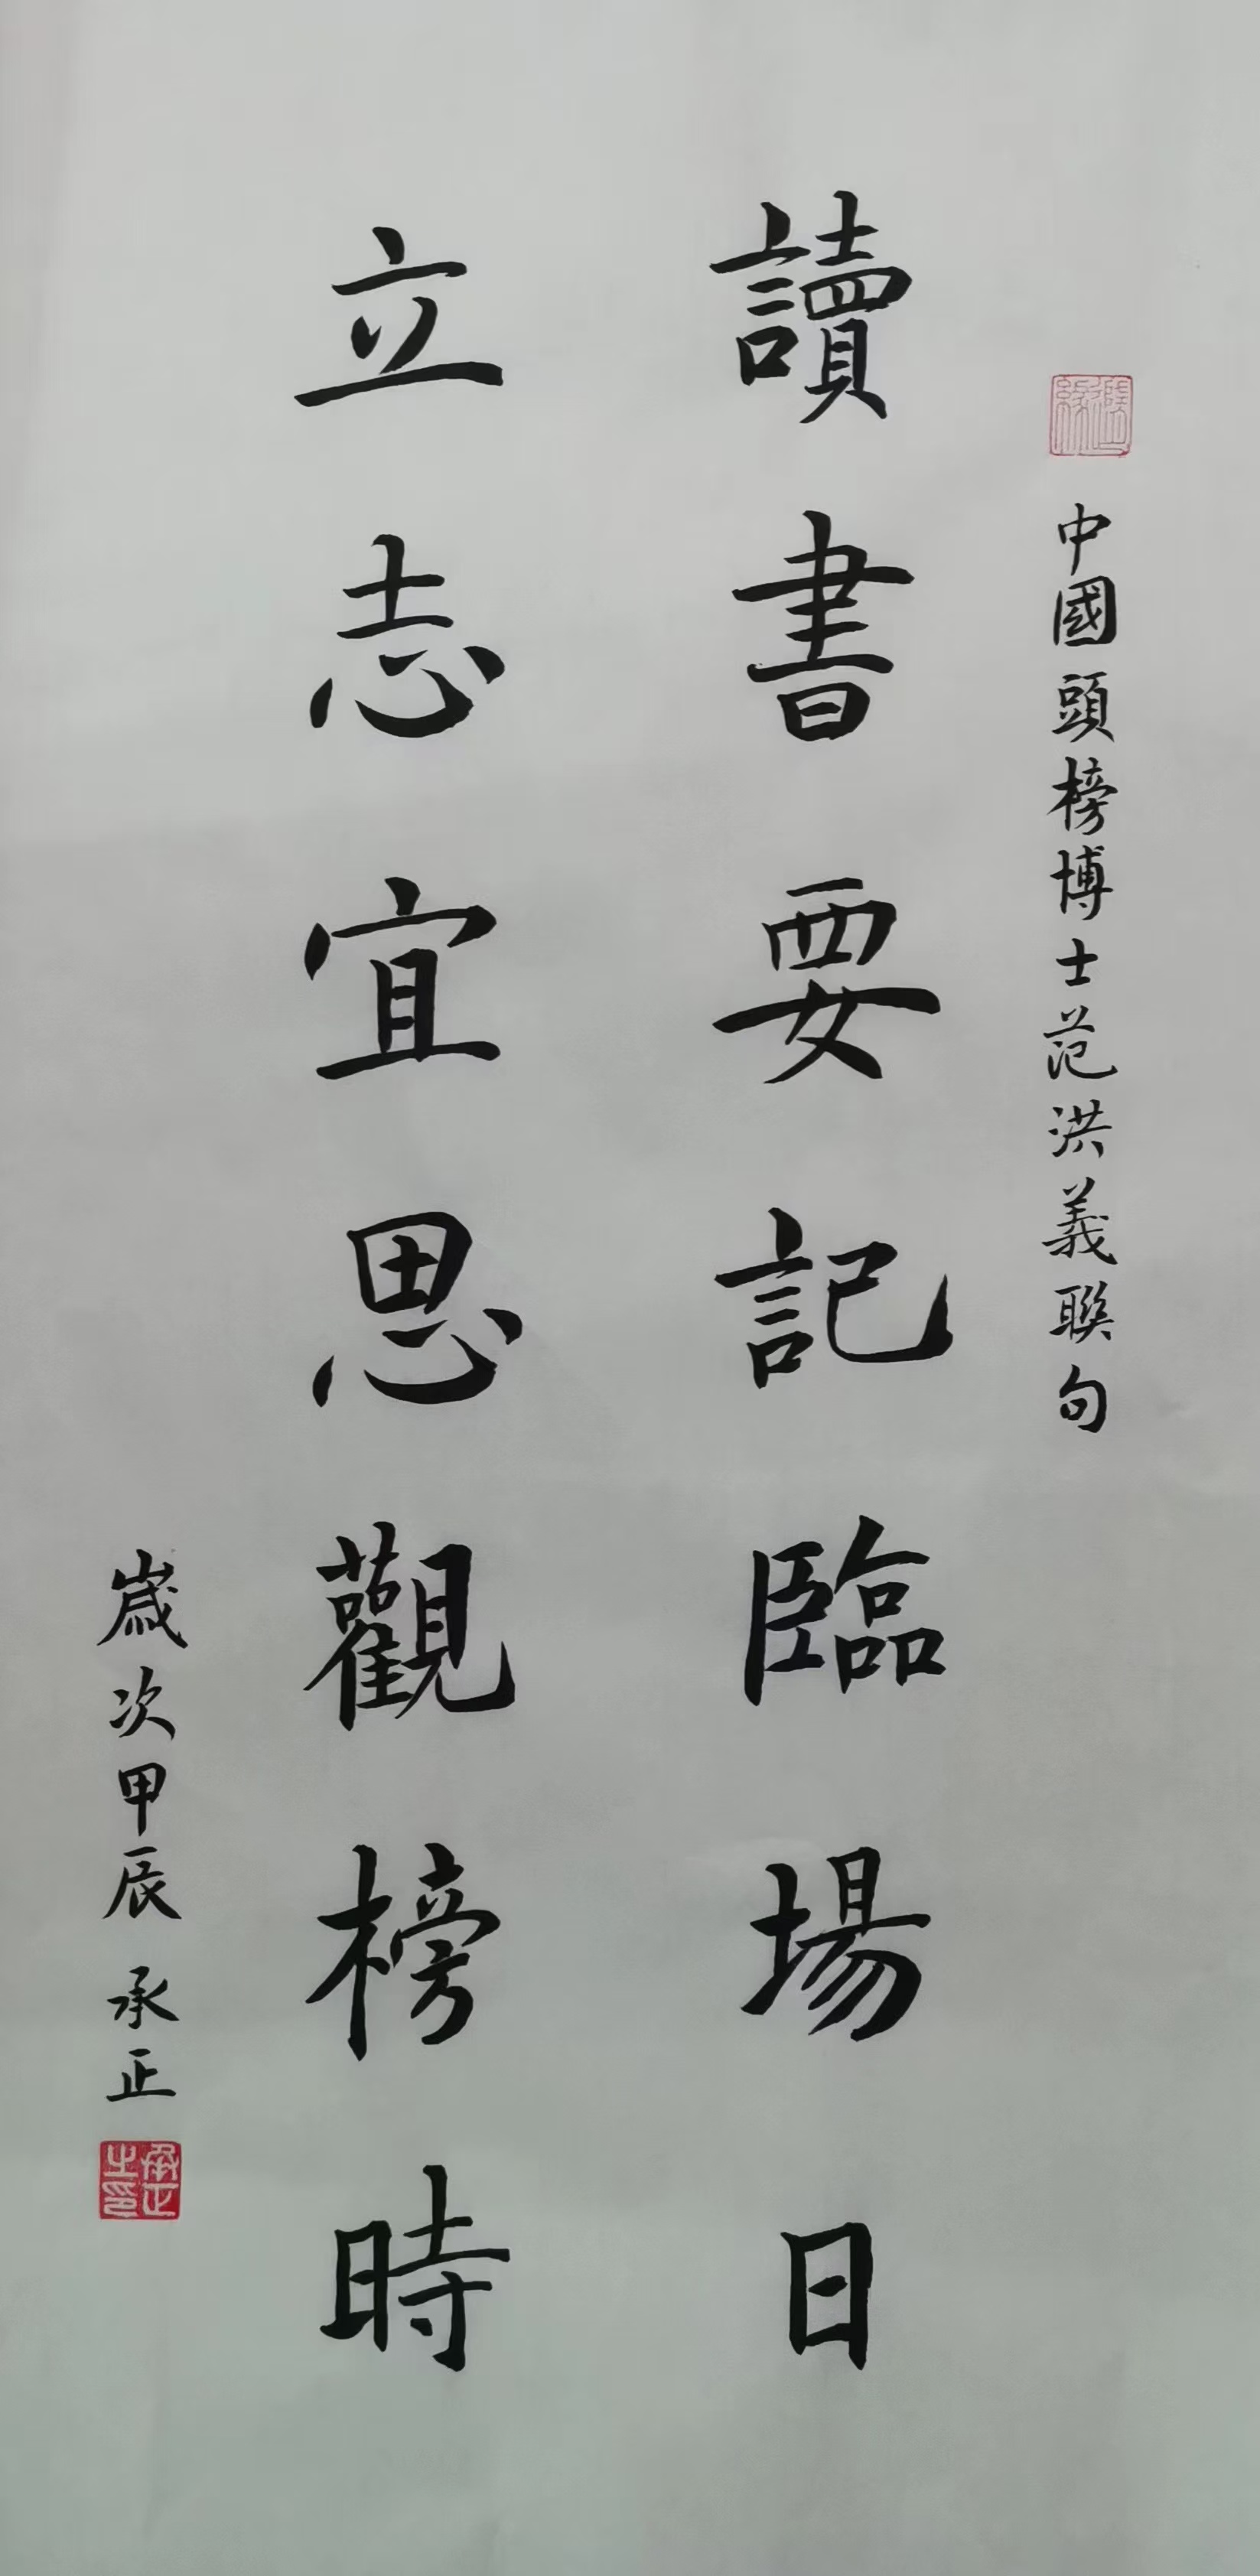 中國頭榜博士范洪義聯句
讀書要記臨場日
立志宜思觀榜時
歲次甲辰 承正
承正之印